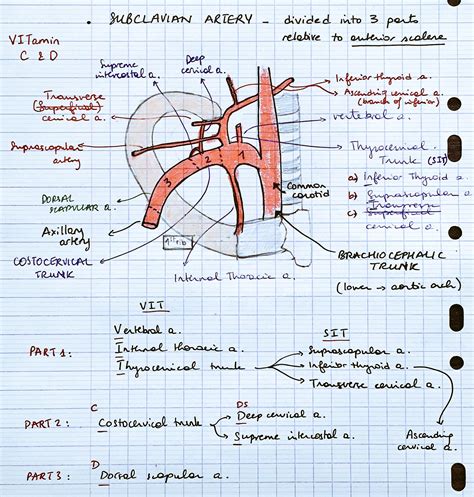 • SUBCLAVIAN ARTERY - divided into 3 parts
relative to anterior scalene
VITamin
C & D
Supreme
intercostal a.
Deep
cervical a.
Inferior thyroid a.
Ascending cervical a.
(branch of inferior)
Transverse
(Superficial)
cervical a.
vertebral a.
Suprascapular
artery
Thyrocervical
Trunk (SIT)
a) Inferior Thyroid a.
b) Suprascapular a.
Transverse
c) Superficial
cervical a.
3 2 1
DORSAL
SCAPULAR a.
Common
carotid
Axillary
artery
1st rib
BRACHIOCEPHALIC
TRUNK
(lower → aortic arch)
COSTOCERVICAL
TRUNK
Internal Thoracic a.
VIT
SIT
PART 1:
Vertebral a.
Internal thoracic a.
Thyrocervical trunk
Suprascapular a.
Inferior thyroid a.
Transverse cervical a.
Ascending
cervical a.
C
DS
PART 2:
Costocervical trunk
Deep cervical a.
Supreme intercostal a.
D
PART 3:
Dorsal scapular a.